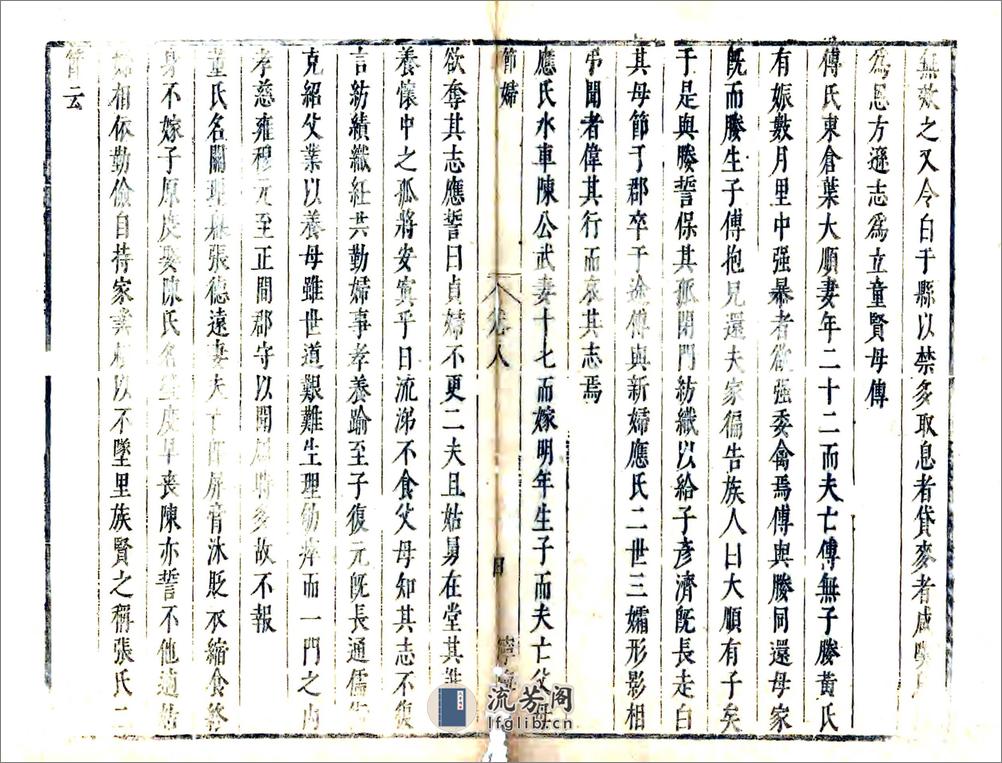 無效之又令白于縣以禁多取息者貸麥者咸
為思方遜志為立童賢母傳
傅氏東倉葉大順妻年二十二而夫亡傅無子媵黃氏
有娠數月里中强暴者欲强委禽焉傅與媵同還母家
旣而媵生子傅抱兒還夫家徧告族人曰大順有子矣
于是與媵誓保其孤閉門紡織以給子彥濟旣長走白
其母節于郡卒于途傅與新婦應氏二世三孀形影相
弔聞者偉其行而哀其志焉
應氏水車陳公武妻十七而嫁明年生子而夫亡父母
節婦
卷八
四
欲奪其志應誓曰貞婦不更二夫且姑舅在堂其誰
養懷中之孤將安寘乎日流涕不食父母知其志不復
言紡績織紝共勤婦事孝養踰至子復元旣長通儒
克紹父業以養母雖世道艱難生理劬瘁而一門之內
孝慈雍穆元至正間郡守以聞屬時多故不報
童氏名關張德遠妻夫亡屏膏沐貶衣縮食終
身不嫁子原度娶陳氏名度早喪陳亦誓不他適姑
婦相依勤儉自持家業賴以不墜里族賢之稱張氏二
節云
流芳阁
lfglib.cn